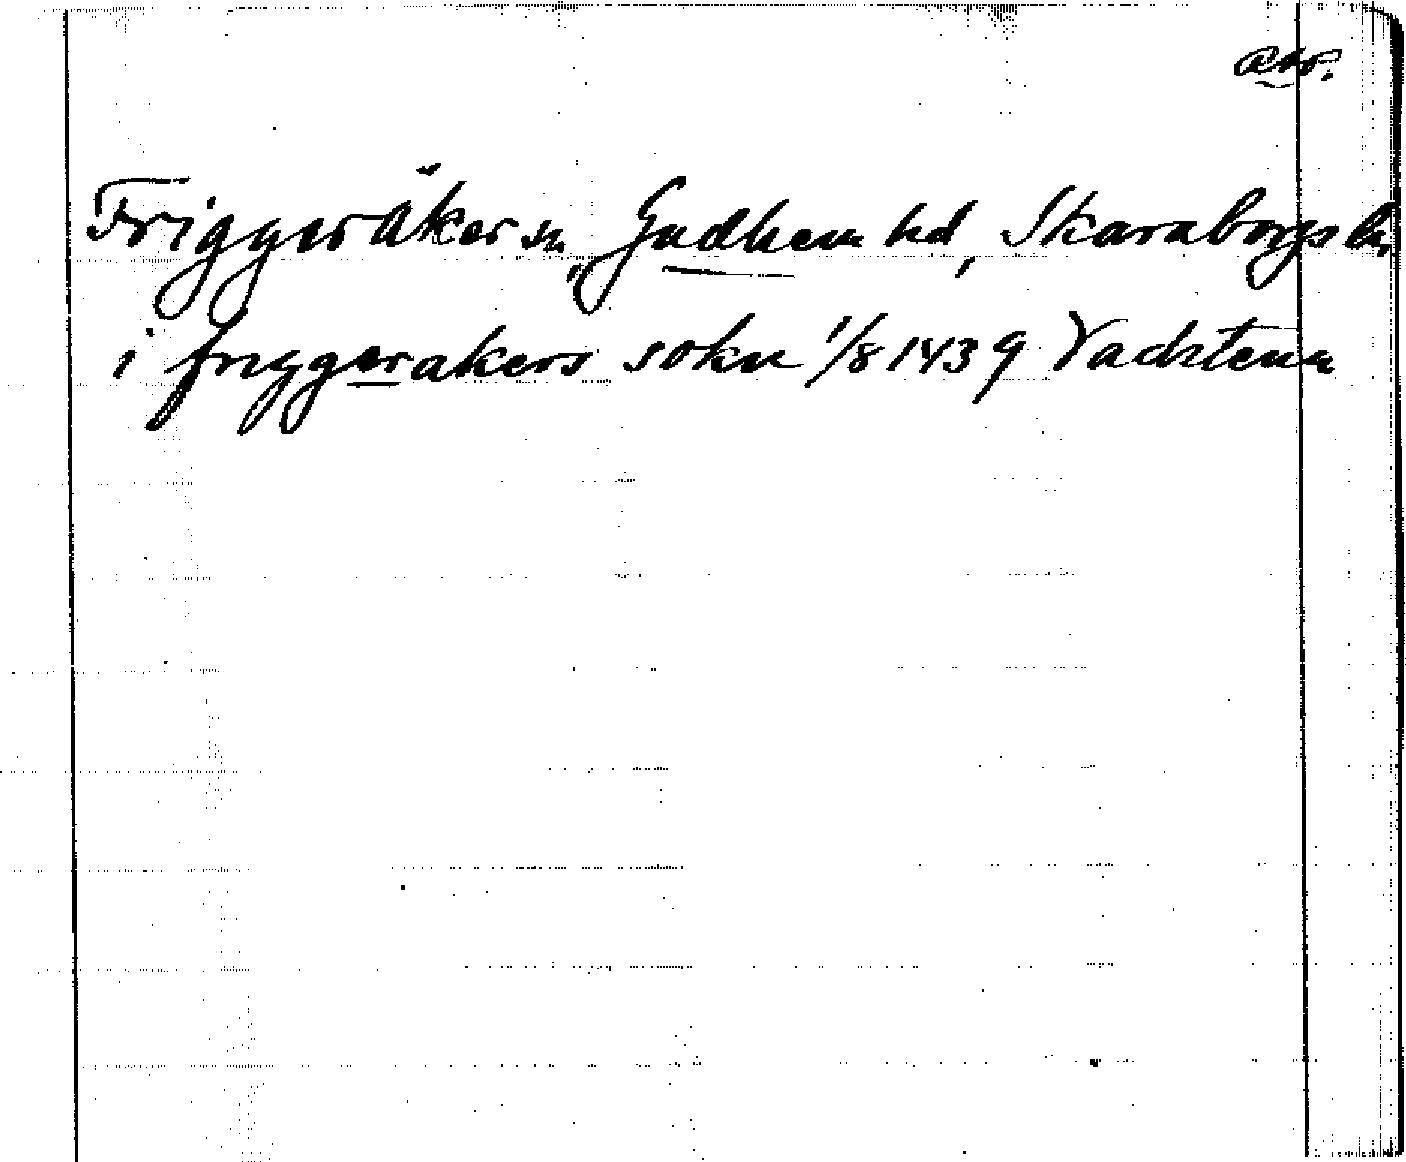 avr.
Friggeråker sn, Gudhem hd, Skaraborgs ln,
i friggerakers sokn 1/8 1439 Vadstena